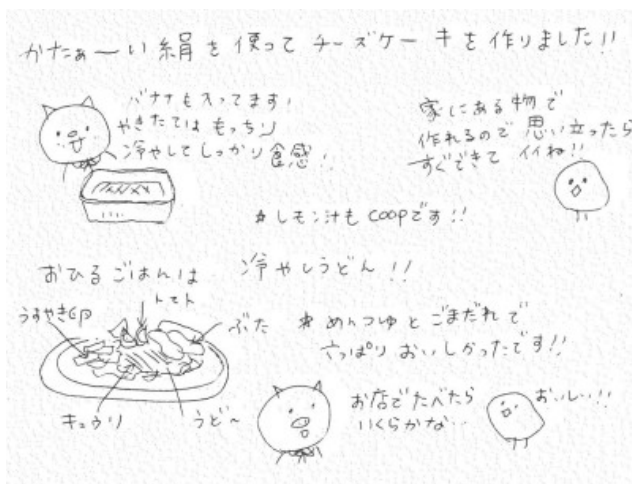 かたぁーい絹を使ってチーズケーキを作りました!!
バナナも入ってます!
やきたてはもっちり
冷やしてしっかり食感!
家にある物で
作れるので思い立ったら
すぐできてイイね!!
*レモン汁もCOOPです!!
おひるごはんは
冷やしうどん!!
トマト
うすやき卵
ぶた
キュウリ
うど〜
*めんつゆとごまだれで
さっぱりおいしかったです!!
お店でたべたら
いくらかな…
おいし…!!